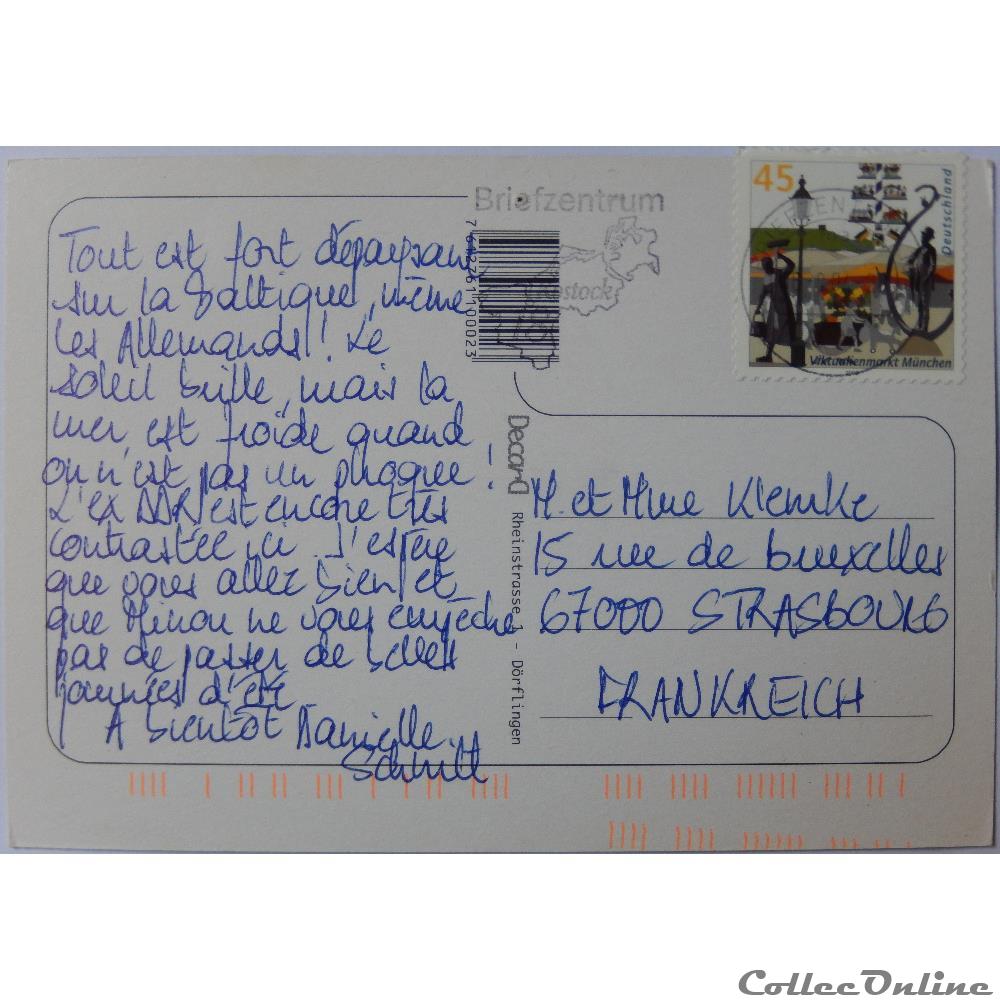 Tout est fort dépaysant
sur la Baltique, même
les Allemands! Le
soleil brille, mais la
mer est froide quand
on n'est pas un phoque!
L'ex DDR est encore très
contrastée ici. J'espère
que vous allez bien et
que Minou ne vous empêche
pas de passer de belles
journées d'été
A bientôt Danielle
Schmitt
Briefzentrum
Rostock
7 642761 100023
Decard
Rheinstrasse 1 - Dörflingen
45
Deutschland
Viktualienmarkt München
M. et Mme Klemke
15 rue de bruxelles
67000 STRASBOURG
FRANKREICH
CollecOnline